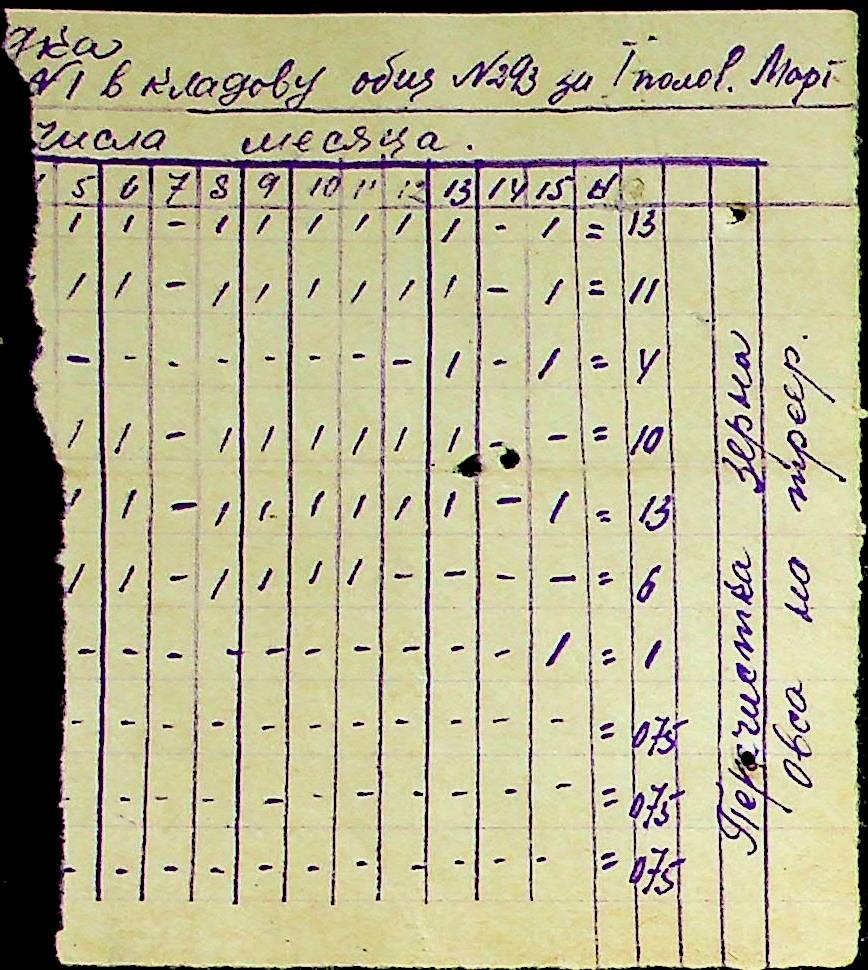 дка
№1 в кладову общ №293 за I полов. Март
числа месяца.
5 6 7 8 9 10 11 12 13 14 15 И
1 1 - 1 1 1 1 1 1 - 1 = 13
1 1 - 1 1 1 1 1 1 - 1 = 11
- - - - - - - - 1 - 1 = 4
1 1 - 1 1 1 1 1 1 - - = 10
1 1 - 1 1 1 1 1 1 - 1 = 13
1 1 - 1 1 1 1 - - - - = 6
- - - - - - - - - - 1 = 1
- - - - - - - - - - - = 075
- - - - - - - - - - = 075
- - - - - - - - - - - = 075
Перечистка зерна
овса на триер.